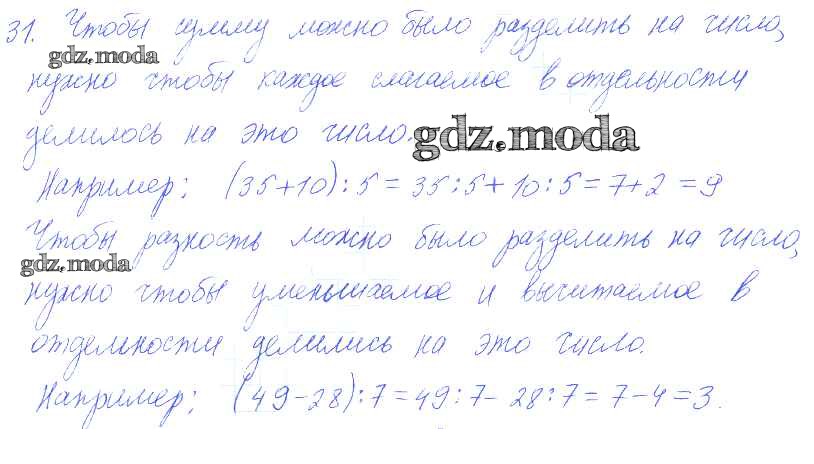 31. Чтобы сумму можно было разделить на число,
gdz.moda
нужно чтобы каждое слагаемое в отдельности
делилось на это число.
gdz.moda
Например; (35+10):5=35:5+10:5=7+2=9
Чтобы разность можно было разделить на число,
gdz.moda
нужно чтобы уменьшаемое и вычитаемое в
отдельности делились на это число.
Например; (49-28):7=49:7-28:7=7-4=3.